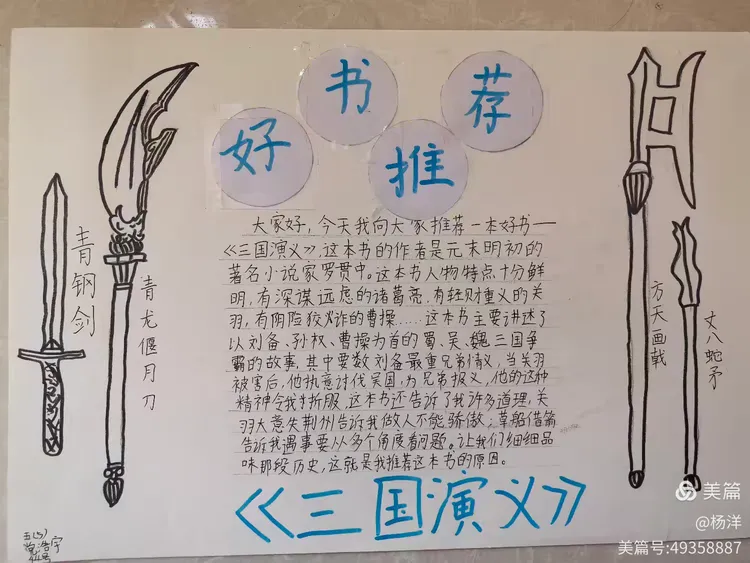 好书推荐
青钢剑
青龙偃月刀
大家好，今天我向大家推荐一本好书—
《三国演义》，这本书的作者是元末明初的
著名小说家罗贯中。这本书人物特点十分鲜
明，有深谋远虑的诸葛亮，有轻财重义的关
羽，有阴险狡诈的曹操……这本书主要讲述了
以刘备、孙权、曹操为首的蜀、吴、魏三国争
霸的故事，其中要数刘备最重兄弟情义，当关羽
被害后，他执意讨伐吴国，为兄弟报义，他的这种
精神令我折服，这本书还告诉了我许多道理，关
羽大意失荆州告诉我做人不能骄傲，草船借箭
告诉我遇事要从多个角度看问题。让我们细细品
味那段历史，这就是我推荐这本书的原因。
方天画戟
丈八蛇矛
《三国演义》
浩宇
美篇
@杨洋
美篇号:49358887